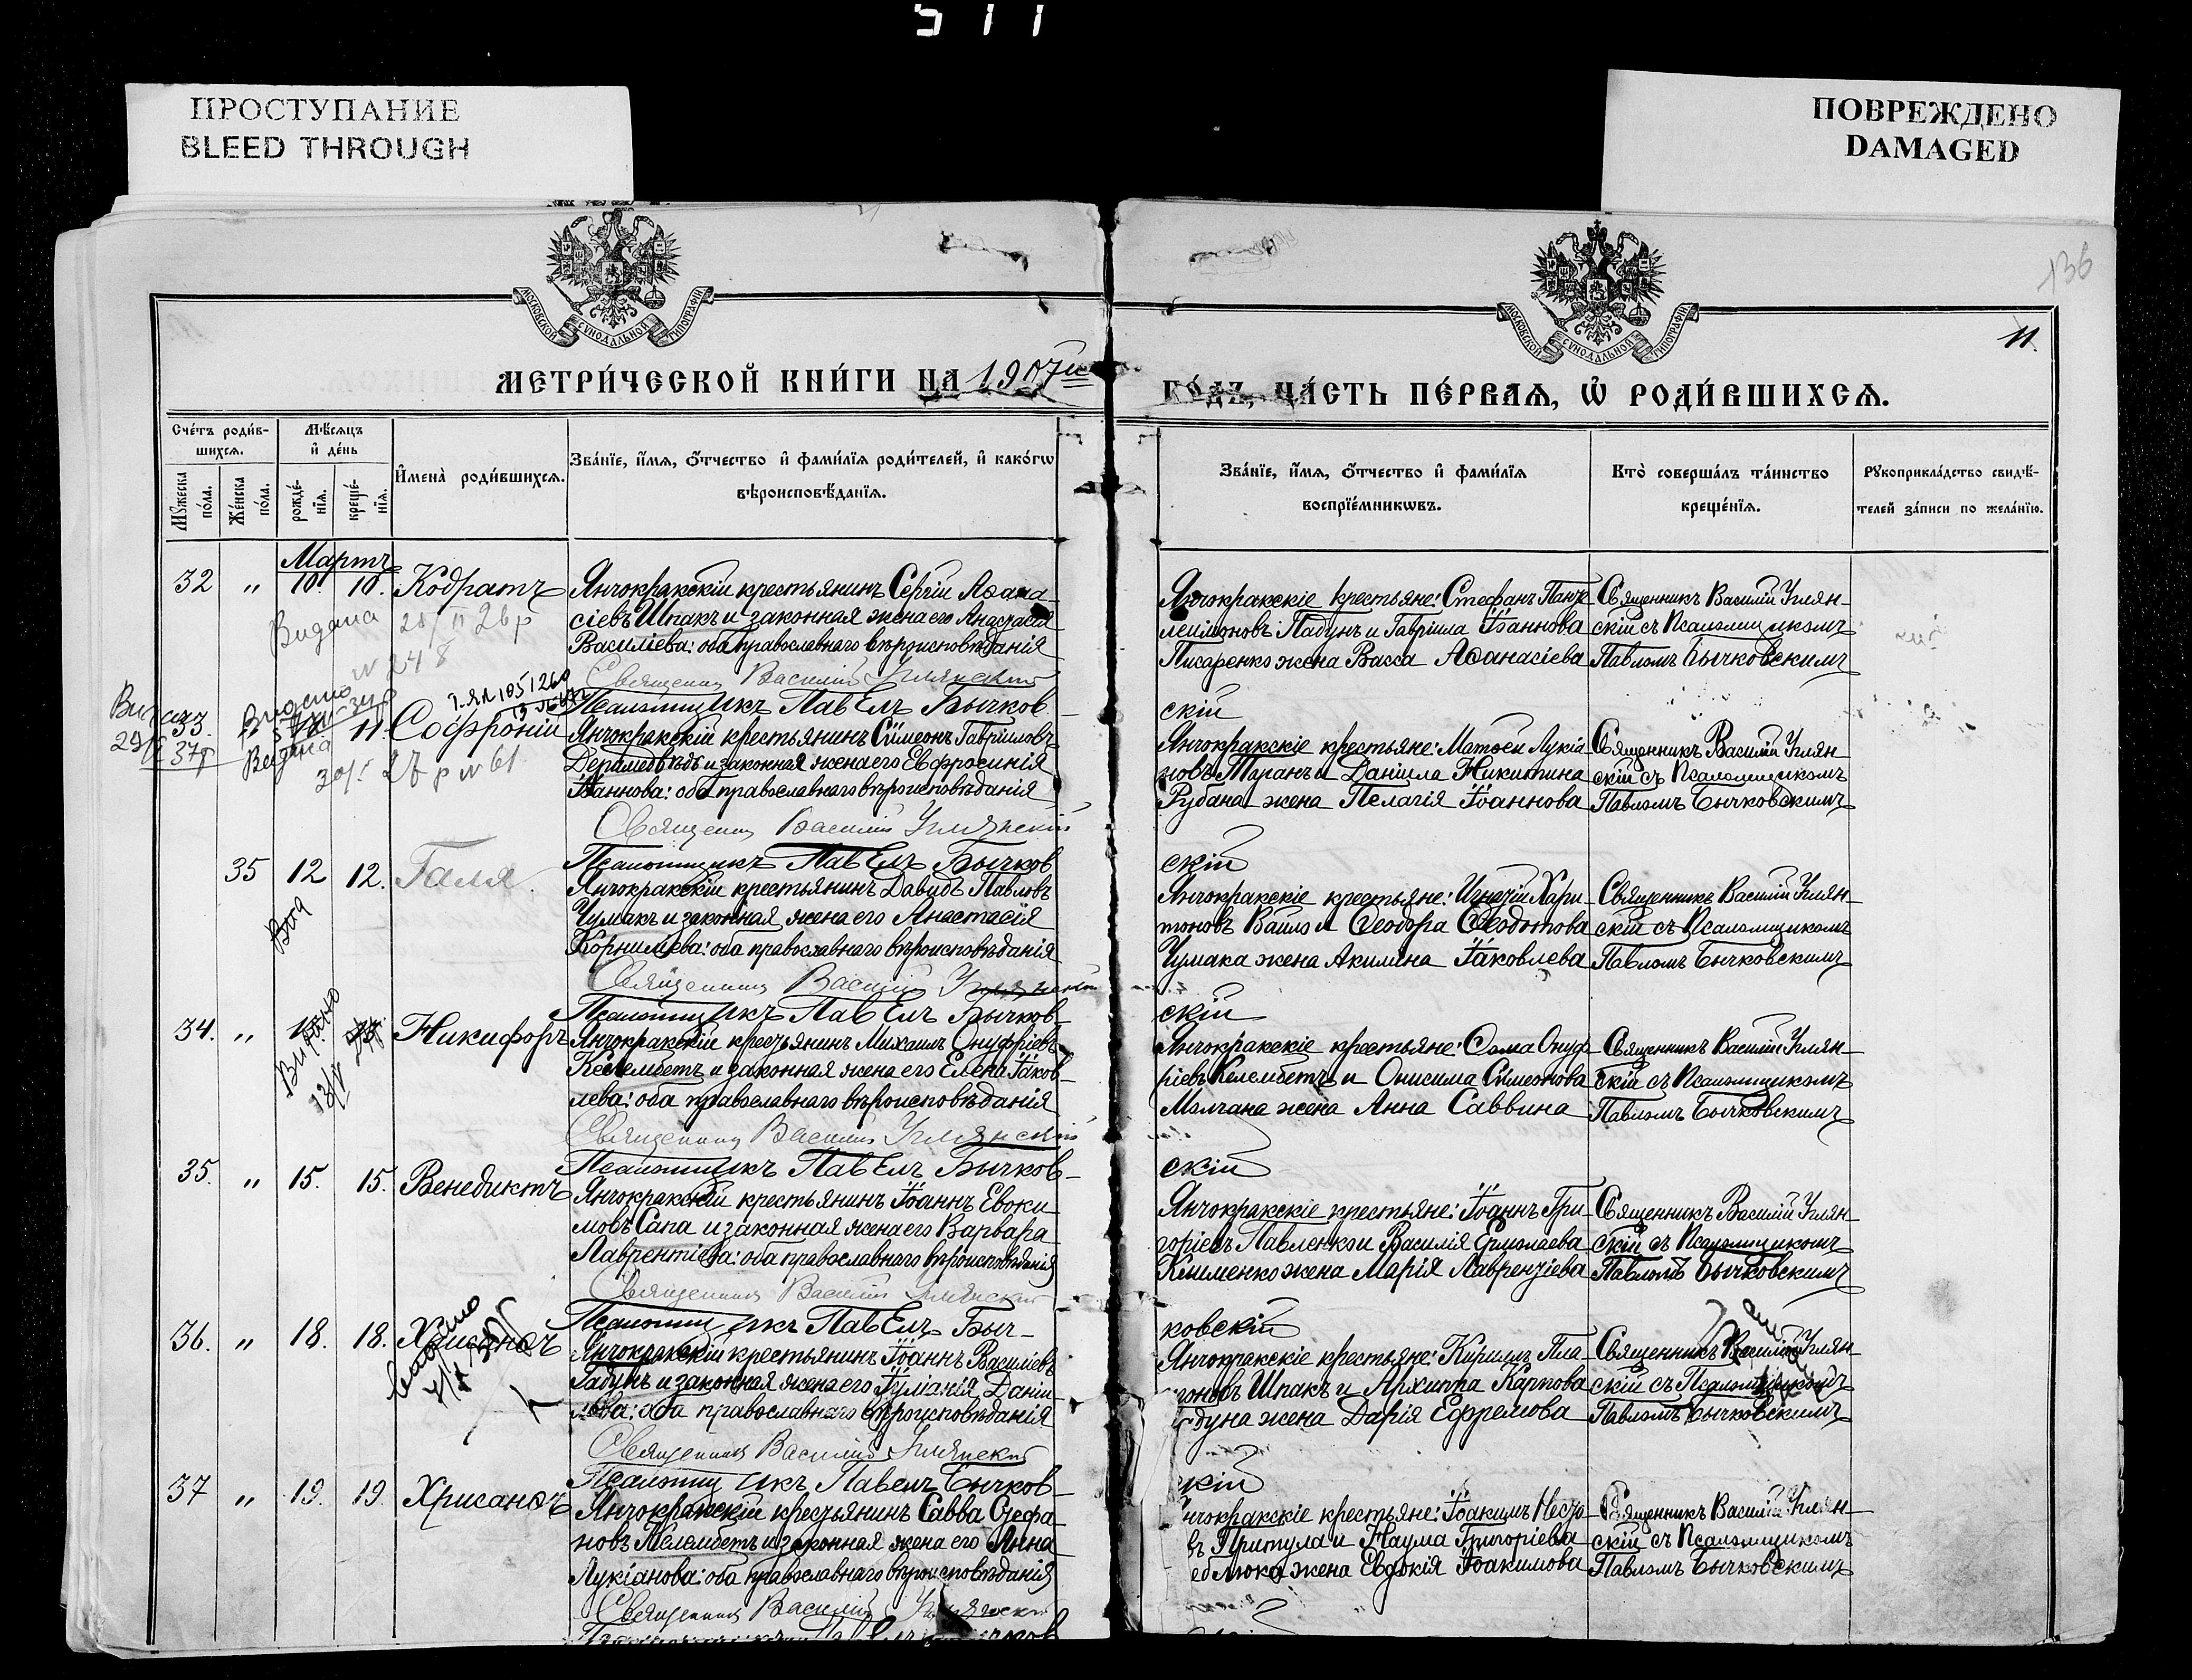 511
ПРОСТУПАНИЕ
BLEED THROUGH
ПОВРЕЖДЕНО
DAMAGED
136
МОСКОВСКОЙ СѴНОДАЛЬНОЙ ТИПОГРАФІИ
МОСКОВСКОЙ СѴНОДАЛЬНОЙ ТИПОГРАФІИ
11.
МЕТРИ́ЧЕСКОЙ КНИ́ГИ НА 1907й
ГО́ДЪ, ЧА́СТЬ ПЕ́РВАѦ, Ѡ РОДИ́ВШИХСѦ.
Сче́тъ роди́в-
шихсѧ.
Мꙋ́жеска по́ла.
Же́нска по́ла.
Мѣ́сѧцъ
и҆ де́нь
рожде́-
нїѧ.
креще́-
нїѧ.
И҆мена̀ роди́вшихсѧ.
Зва́нїе, и҆́мѧ, ѻ҆́тчество и҆ фами́лїѧ роди́телей, и҆ како́гѡ
вѣроисповѣ́данїѧ.
Зва́нїе, и҆́мѧ, ѻ҆́тчество и҆ фами́лїѧ
воспрїе́мникѡвъ.
Кто̀ соверша́лъ та́инство
креще́нїѧ.
Рꙋкоприкла́дство свидѣ́-
телей за́писи по жела́нїю.
Мартъ
32 " 10. 10. Кодратъ
Янчокракскій крестьянинъ Сергій Аѳана-
сіевъ Шпакъ и законная жена его Анастасія
Василіева: оба православнаго вѣроисповѣданія
Священникъ Василій Углянскій
Псаломщикъ Павелъ Бычков-
Янчокракскіе крестьяне: Стефанъ Панте-
леимоновъ Падунъ и Гавріила Іоаннова
Писаренко жена Васса Аѳанасіева
скій
Священникъ Василій Углян-
скій съ Псаломщикомъ
Павломъ Бычковскимъ
Видана
N 248
33. " 11. Софроній
Янчокракскій крестьянинъ Сімеонъ Гавріиловъ
Дерамедвѣдь и законная жена его Евфросинія
Іоаннова: оба православнаго вѣроисповѣданія
Священникъ Василій Углянскій
Псаломщикъ Павелъ Бычков
Янчокракскіе крестьяне: Матѳей Лукіа-
новъ Таранъ и Даніила Никитина
Рубана жена Пелагія Іоаннова
скій
Священникъ Василій Углян
скій съ Псаломщикомъ
Павломъ Бычковскимъ
N 61
35 12 12. Галя
Янчокракскій крестьянинъ Давидъ Павловъ
Чумакъ и законная жена его Анастасія
Корниліева: оба православнаго вѣроисповѣданія
Священникъ Василій Углянскій
Псаломщикъ Павелъ Бычков-
Янчокракскіе крестьяне: Игнатій Хари-
тоновъ Вайло и Ѳеодора Ѳеодотова
Чумака жена Акилина Іаковлева
скій
Священникъ Василій Углян-
скій съ Псаломщикомъ
Павломъ Бычковскимъ
34. " Никифоръ
Янчокракскій крестьянинъ Михаилъ Онуфріевъ
Келембетъ и законная жена его Елена Іаков-
лева: оба православнаго вѣроисповѣданія
Священникъ Василій Углянскій
Псаломщикъ Павелъ Бычков-
Янчокракскіе крестьяне: Ѳома Онуф-
ріевъ Келембетъ и Онисима Симеонова
Молчана жена Анна Саввина
скій
Священникъ Василій Углян-
скій съ Псаломщикомъ
Павломъ Бычковскимъ
35. " 15. 15. Венедиктъ
Янчокракскій крестьянинъ Іоаннъ Евоки
мовъ Сапа и законная жена его Варвара
Лаврентіева: оба православнаго вѣроисповѣданія
Священникъ Василій Углянскій
Псаломщикъ Павелъ Быч-
Янчокракскіе крестьяне: Іоаннъ Гри-
горіевъ Павленко и Василія Ермолаева
Клименко жена Марія Лаврентіева
ковскій
Священникъ Василій Углян-
скій съ Псаломщикомъ
Павломъ Бычковскимъ
36. " 18. 18. Хрисанѳъ
Янчокракскій крестьянинъ Іоаннъ Василіевъ
Падунъ и законная жена его Іуліанія Даніи
лова: оба православнаго вѣроисповѣданія
Священникъ Василій Углянскій
Псаломщикъ Павелъ Бычков-
Янчокракскіе крестьяне: Кириллъ Пла-
тоновъ Шпакъ и Архиппа Карпова
дуна жена Дарія Ефремова
кій
Священникъ Василій Углян-
скій съ Псаломщикомъ
Павломъ Бычковскимъ
37 " 19. 19. Хрисанѳъ
Янчокракскій крестьянинъ Савва Стефа-
новъ Келембетъ и законная жена его Анна
Лукіанова: оба православнаго вѣроисповѣданія
Священникъ Василій Углянскій
нчокракскіе крестьяне: Іоакимъ Несто-
въ Притула и Наума Григоріева
еблюка жена Евдокія Іоакимова
Священникъ Василій Углян-
скій съ Псаломщикомъ
Павломъ Бычковскимъ